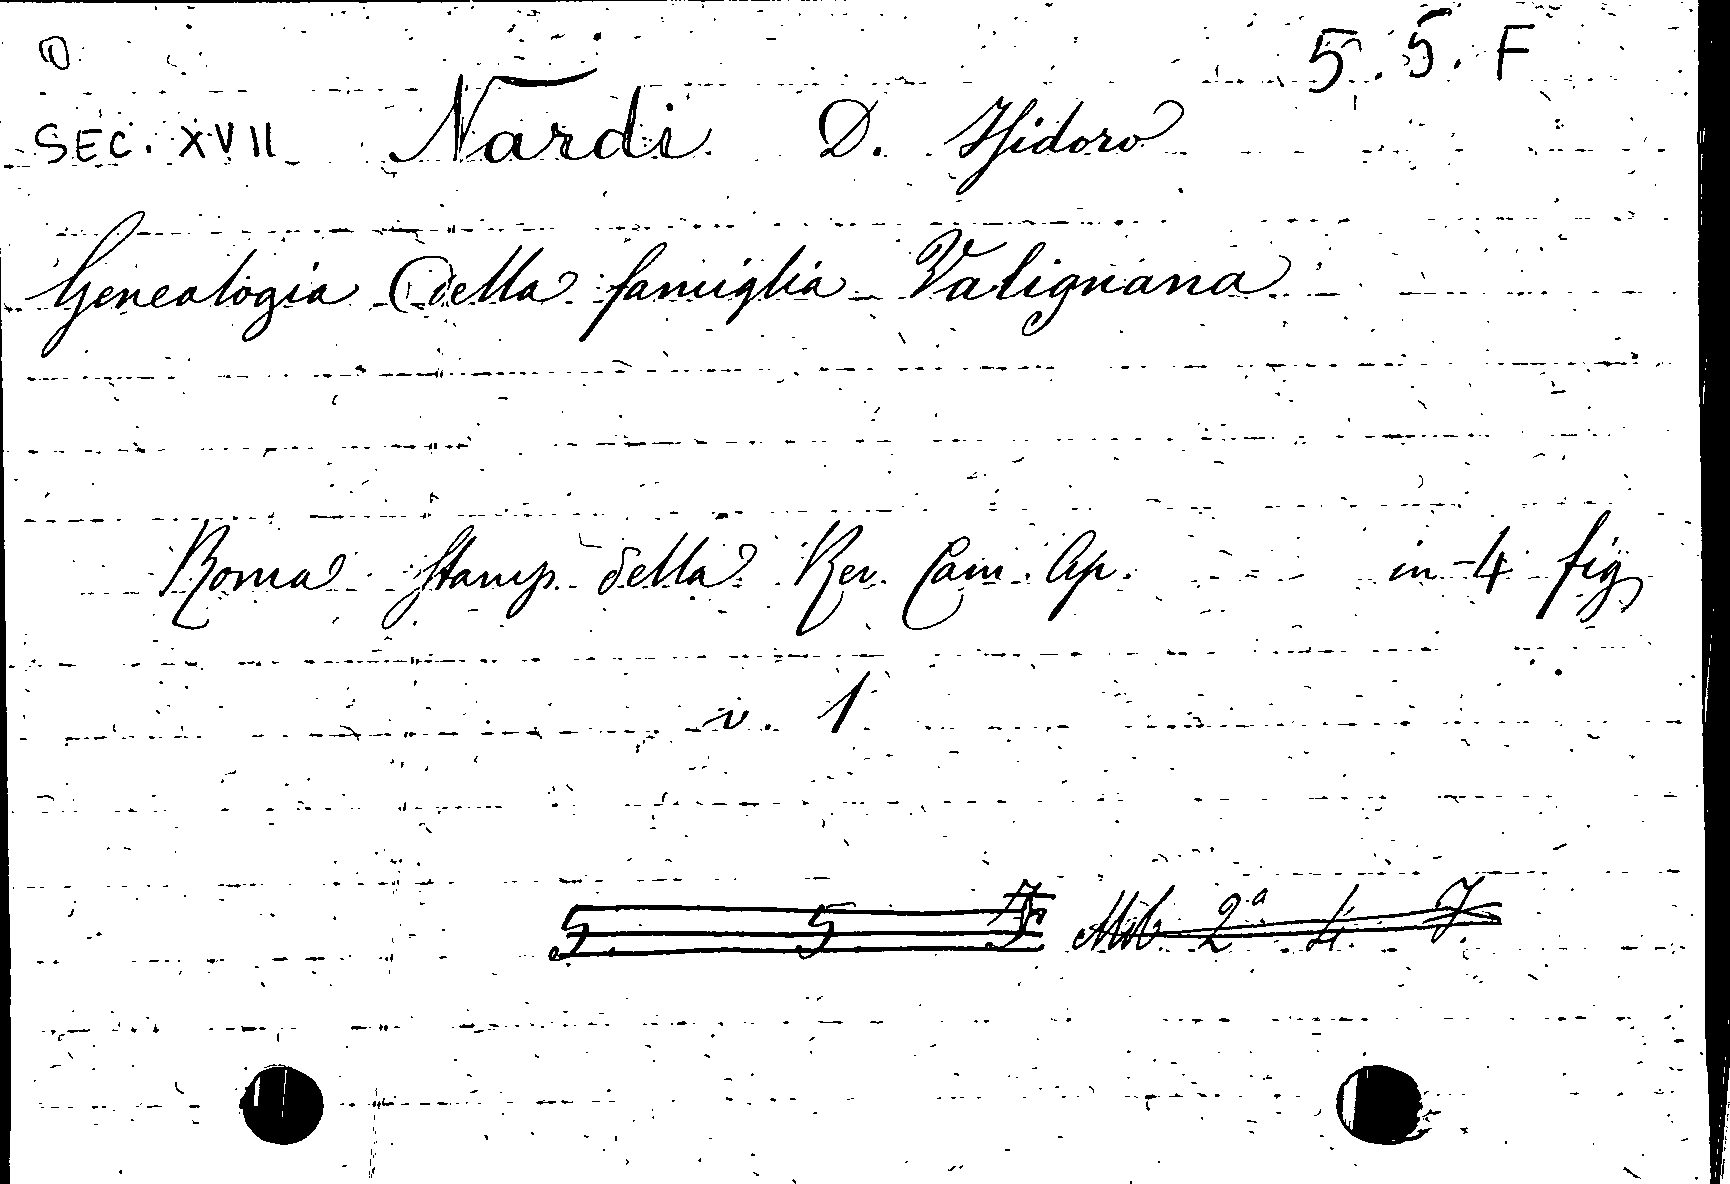 5. 5. F
SEC. XVII Nardi D. Isidoro
Genealogia della famiglia Valignana
Roma Stamp. della Rev. Cam. Ap. in-4 fig
v. 1
5. 5 F 2ª 4. 7.